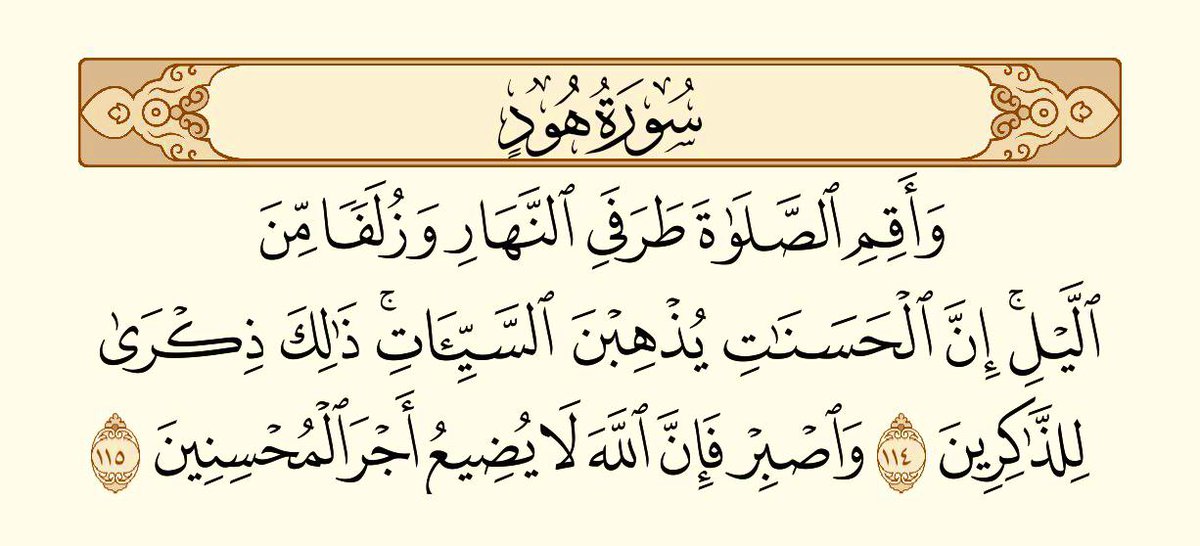 سُورَةُ هُودٍ
وَأَقِمِ ٱلصَّلَوٰةَ طَرَفَيِ ٱلنَّهَارِ وَزُلَفًا مِّنَ
ٱلَّيْلِۚ إِنَّ ٱلْحَسَنَٰتِ يُذْهِبْنَ ٱلسَّيِّـَٔاتِۚ ذَٰلِكَ ذِكْرَىٰ
لِلذَّٰكِرِينَ ١١٤ وَٱصْبِرْ فَإِنَّ ٱللَّهَ لَا يُضِيعُ أَجْرَ ٱلْمُحْسِنِينَ ١١٥